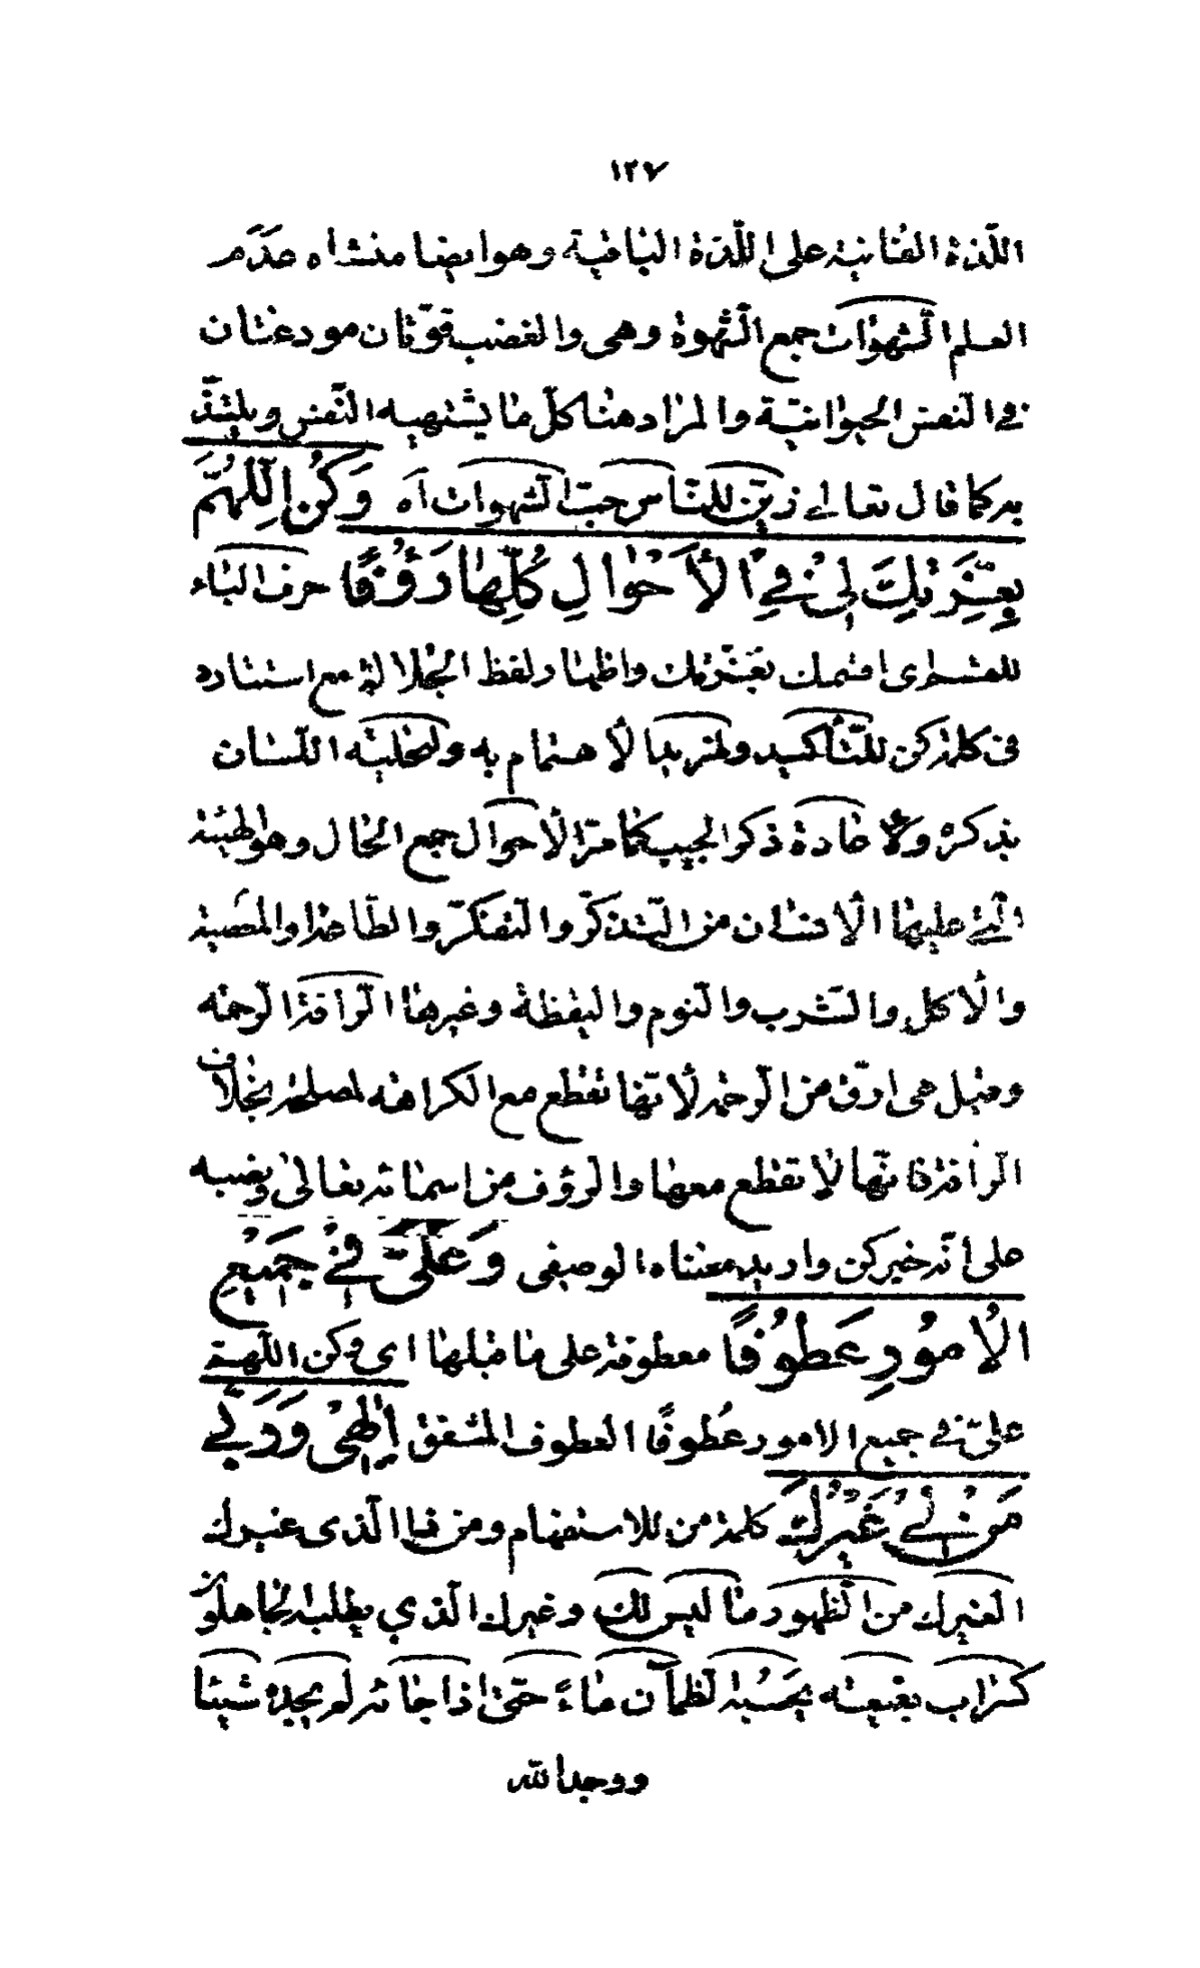 ١٢٧
اللّذة الفانية على اللّذة الباقية وهو ايضا منشاه عدم
العلم الشّهوات جمع الشّهوة وهى والغضب قوّتان مودعتان
فى النّفس الحيوانيّة والمراد هنا كلّ ما يشتهيه النّفس ويلتذّ
به كما قال تعالى زيّن للنّاس حبّ الشّهوات اه وَكُنِ اللّٰهُمَّ
بِعِزَّتِكَ لِىْ فِى الْأَحْوَالِ كُلِّهَا رَؤُفًا حرف الباء
للقسم اى اقسمك بعزّتك واظهار لفظ الجلالة مع استتاره
فى كلمة كن للتّأكيد ولمزيد الأهتمام به ولتحلية اللّسان
بذكره ولاعادة ذكر الحبيب كما مرّ الأحوال جمع الحال وهو الهيئة
الّتى عليها الأنسان من التّذكّر والتّفكّر والطّاعة والمعصية
والأكل والشّرب والنّوم واليقظة وغيرها الرّافة الرّحمة
وقيل هى ارقّ من الرّحمة لأنّها تقطع مع الكراهة لمصلحة بخلاف
الرّافة فانّها لا تقطع معها والرّؤف من اسمائه تعالى ونصبه
على انّه خبر كن واريد معناه الوصفى وَعَلَىَّ فِىْ جَمِيْعِ
الْاُمُوْرِ عَطُوْفًا معطوفة على ما قبلها اى وكن اللّهمّ
علىّ فى جميع الامور عطوفًا العطوف المشفق اِلٰهِىْ وَرَبِّىْ
مَنْ لِىْ غَيْرُكَ كلمة من للاستفهام ومن ذا الّذى غيرك
الغيرك من الظّهور ما ليس لك وغيرك الّذي يطلبه الجاهلون
كسراب بقيعة يحسبه الظمآن ماءً حتّى اذا جائه لم يجده شيئا
ووجد الله